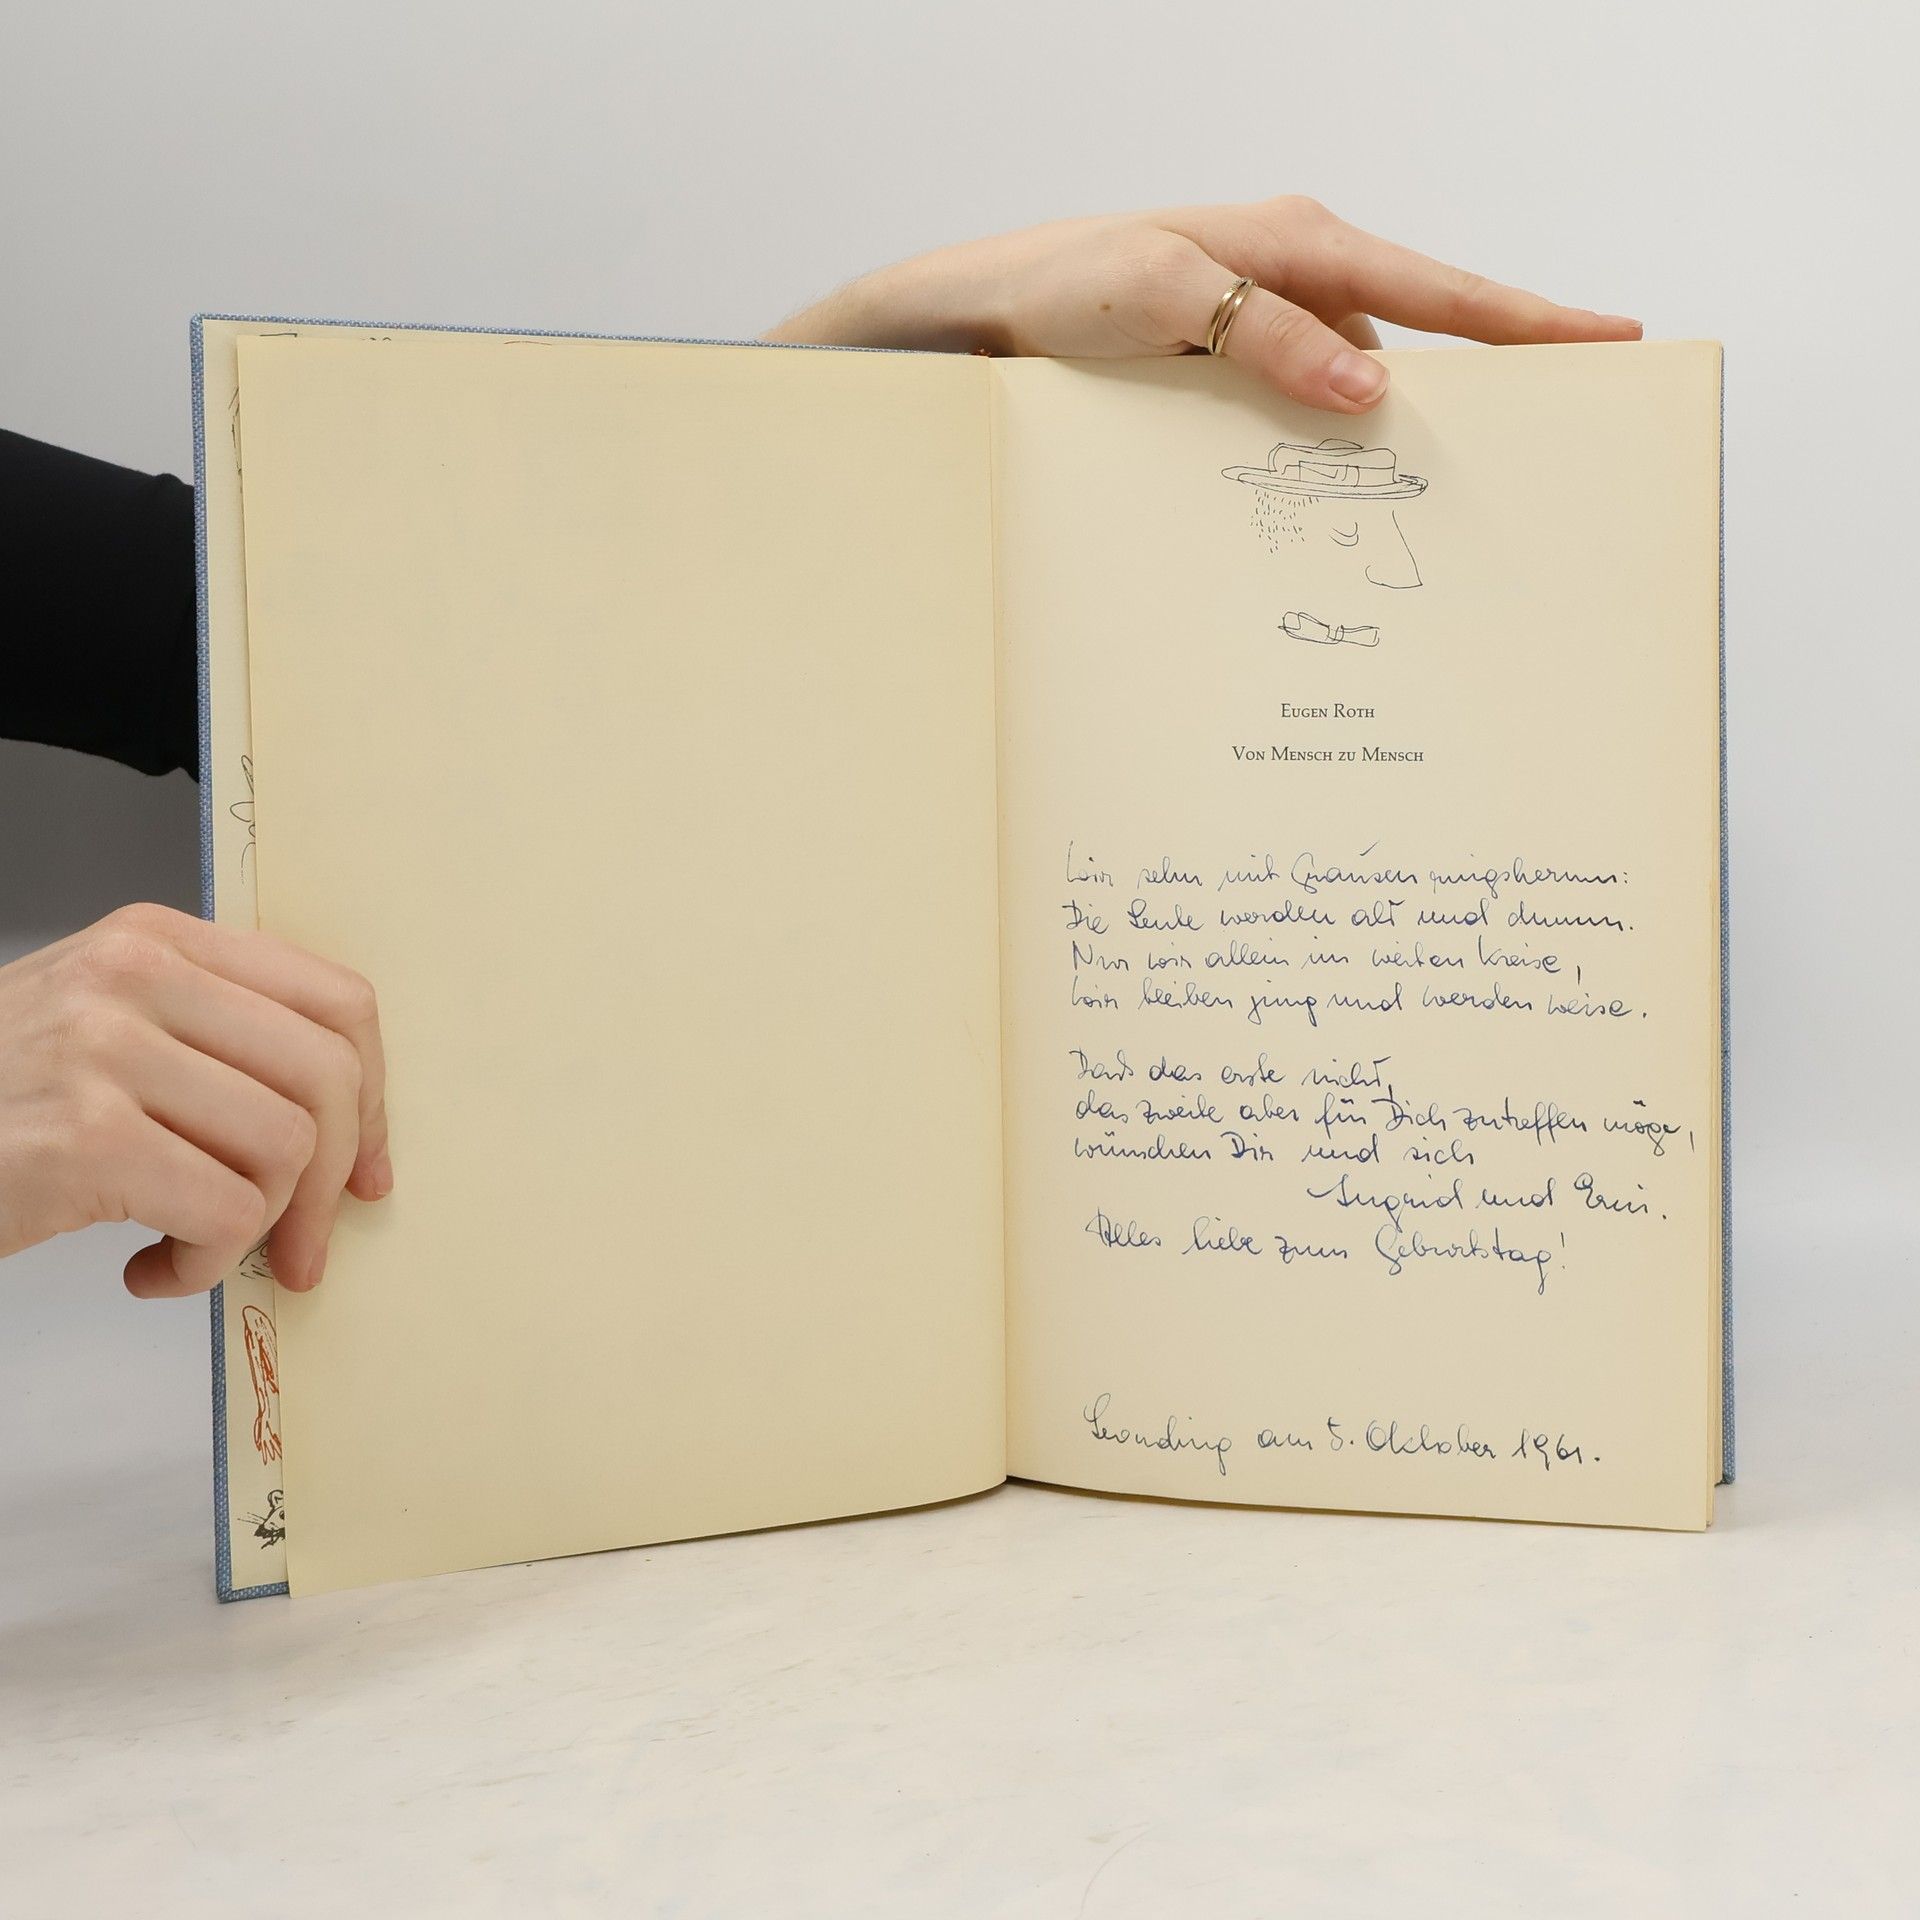 Eugen Roth
Von Mensch zu Mensch
Wir sehn mit Grausen ringsherum:
Die Leute werden alt und dumm.
Nur wir allein im weiten Kreise,
Wir bleiben jung und werden weise.
Daß das erste nicht,
das zweite aber für Dich zutreffen möge,
wünschen Dir und sich
Ingrid und Erni.
Alles liebe zum Geburtstag!
Leonding am 5. Oktober 1961.